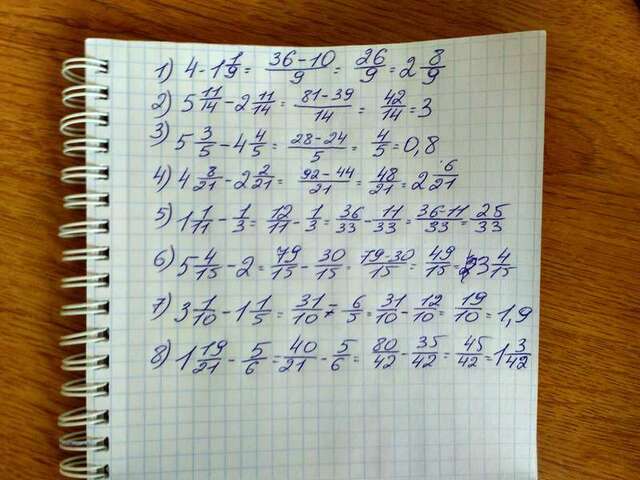 1) 4 - 1 1/9 = 36-10/9 = 26/9 = 2 8/9
2) 5 11/14 - 2 11/14 = 81-39/14 = 42/14 = 3
3) 5 3/5 - 4 4/5 = 28-24/5 = 4/5 = 0,8
4) 4 8/21 - 2 2/21 = 92-44/21 = 48/21 = 2 6/21
5) 1 1/11 - 1/3 = 12/11 - 1/3 = 36/33 - 11/33 = 36-11/33 = 25/33
6) 5 4/15 - 2 = 79/15 - 30/15 = 79-30/15 = 49/15 = 3 4/15
7) 3 1/10 - 1 1/5 = 31/10 - 6/5 = 31/10 - 12/10 = 19/10 = 1,9
8) 1 19/21 - 5/6 = 40/21 - 5/6 = 80/42 - 35/42 = 45/42 = 1 3/42